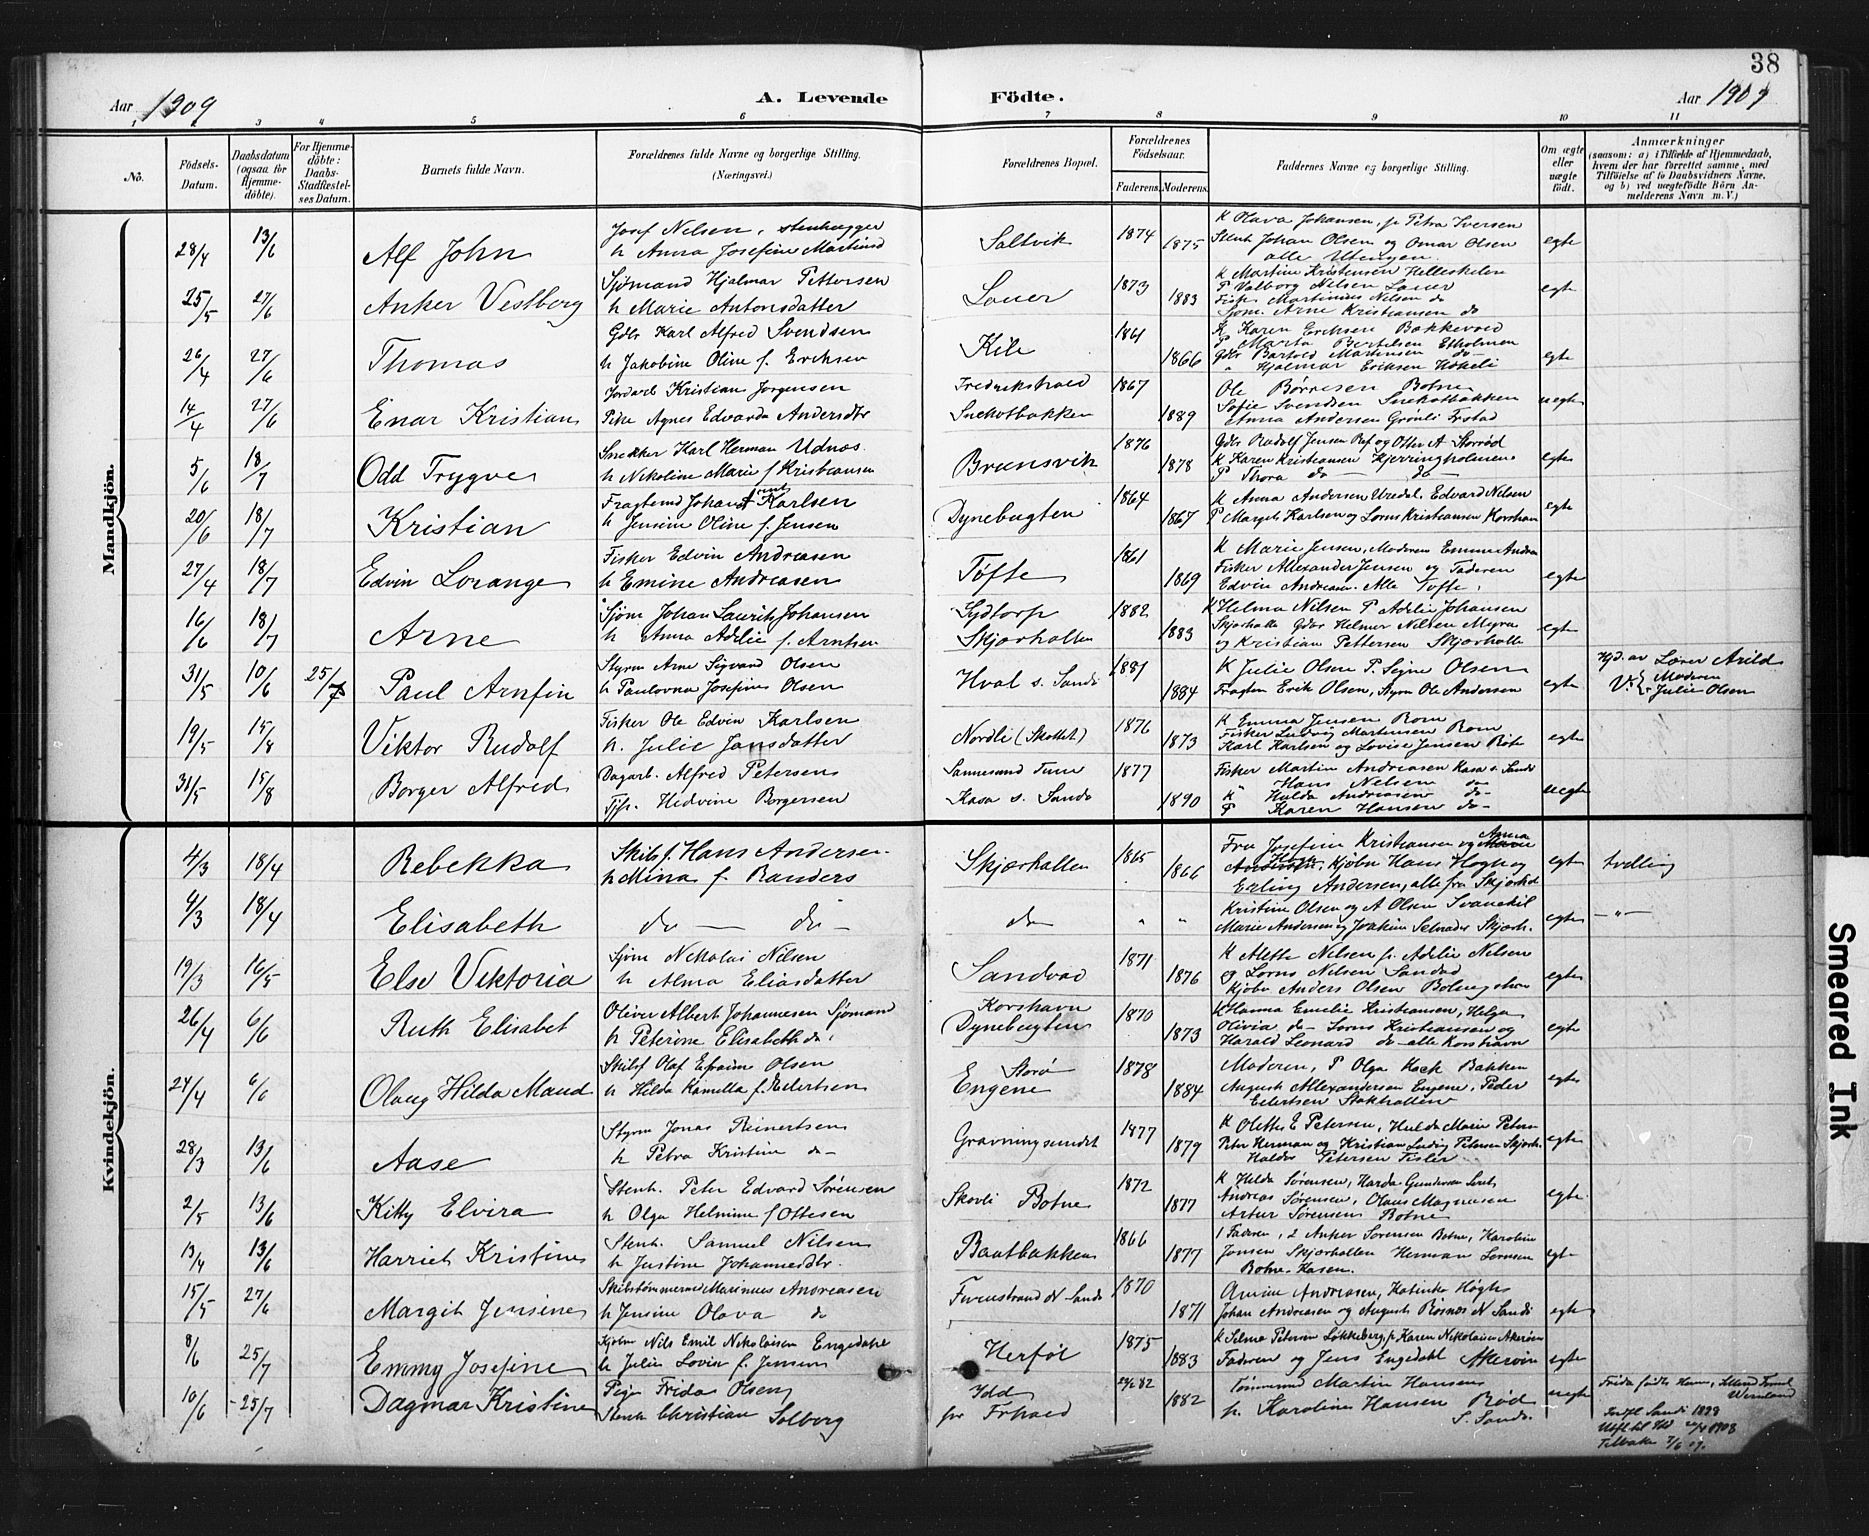 38
Aar 1909 A. Levende Födte. Aar 1909
1 2 3 4 5 6 7 8 9 10 11
No. Födsels-Datum. Daabsdatum (ogsaa for Hjemmedöbte). For Hjemmedöbte: Daabs-Stadfæstelses Datum. Barnets fulde Navn. Forældrenes fulde Navne og borgerlige Stilling. (Næringsvei.) Forældrenes Bopæl. Forældrenes Födselsaar. Faderens. Moderens. Faddernes Navne og borgerlige Stilling. Om ægte eller uægte födt. Anmærkninger (saasom: a) i Tilfælde af Hjemmedaab, hvem der har forrettet samme, med Tilföielse af to Daabsvidners Navne, og b) ved uægtefödte Börn Anmelderens Navn m. V.)
Mandkjön.
28/4 13/6 Alf John Josef Nilsen, stenhugger Saltvik 1874 1875 K Olava Johansen, p Petra Iversen egte
h Anna Josefine
Stenh Johan Olsen og Omar Olsen
alle Utengen.
25/5 27/6 Anker Vestberg Sjømand Hjalmar Pettersen Lauer 1873 1883 K Martine Kristensen Helleskilen egte
h Marie Antonsdatter
P Valborg Nilsen Lauer
Fisk. Martinius Nilsen do
Sjøm. Arne Kristiansen do
26/4 27/6 Thomas Gdbr Karl Alfred Svendsen Kile 1861 1866 K Karen Eriksen Bakkevold egte
h Jakobine Oline f. Eriksen
P Marta Bertelsen Etholmen
Gdbr Bartold Martinsen do
" Hjalmar Eriksen
14/4 27/6 Einar Kristian Jordarb Kristian Jørgensen Fredrikstad 1867 Ole Børresen Botne uegte
Pike Agnes Edvarda Andersdtr Snekotbakken 1889 Sofie Svendsen Snekotbakken
Anna Andersen Grønli Frstad
5/6 18/7 Odd Trygve Snekker Karl Herman Udnæs Brænsvik 1876 1878 Gdbr Rudolf Jensen Røf og Otter A Storrød egte
h Nikoline Marie f Kristiansen
K Karen Kristiansen Kjerringholmen
P Thora do do
20/6 18/7 Kristian Fragtemd Johan Karlsen Dynebugten 1864 1867 K Anna Andersen Urdal. Edvard Nilsen egte
h Jensine Oline f. Jensen
P Margit Karlsen og Lorns Kristiansen Korshavn
27/4 18/7 Edvin Lorange Fisker Edvin Andreasen Tofte 1861 1869 K Marie Jensen, Moderen Emma Andrea egte
h Emine Andreasen
Fisker Alexander Jensen og Faderen
Edvin Andreasen. Alle Tofte.
16/6 18/7 Arne Sjøm Johan Laurits Johansen Sydtorp 1882 K Helma Nilsen P Adelie Johansen egte
h Anna Adelie f. Arntsen Skjærhallen 1883 Skjærhalle Gdbr Helmer Nilsen
og Kristian Pettersen Skjærhalle
31/5 10/6 25/7 Paul Arnfin Styrm Arne Sigvard Olsen Hval s. Sandø 1881 1884 K Julie Olsen P. Signe Olsen egte Hjd. av Lærer Arild
h Paulovna Josefine Olsen
Fragtem Erik Olsen, Styrm Ole Andersen
V. Moderen Julie Olsen
19/5 15/8 Viktor Rudolf Fisker Ole Edvin Karlsen Nordli (Skottet) 1876 1873 K Emma Jensen Rom egte
h. Julie Jansdatter
Fisker Ludvig Martinsen Rom
Karl Karlsen og Lovise Jensen Røte
31/5 15/8 Borger Alfred Dagarb. Alfred Petersen Sannesund Tune 1877 Fisker Martin Andreasen Kasa s. Sandø uegte
Tjp. Hedvine Borgersen Kasa s. Sandø 1890 " Hans Nilsen do
K Hulda Andreasen do-
P Karen Hansen do-
Kvindekjön.
4/3 18/4 Rebekka Skibsf. Hans Andersen Skjærhallen 1865 1866 Fru Josefine Kristiansen og Anna egte tvilling
h Mina f. Randers
Kjøbm Hans Høgh og
Erling Andersen, alle fra Skjærhal
9/3 18/4 Elisabeth do — do — do " " Kristine Olsen og A Olsen Svanekil egte —"—
Marie Andersen og Joakim Selnades Skjærh.
19/3 16/5 Else Viktoria Sjøm Nikolai Nilsen Sandvad 1871 1876 K Alette Nilsen p. Adelie Nilsen egte
h Alma Eliasdatter
og Lorns Nilsen Sandvad
Kjøbm Anders Olsen
26/4 6/6 Ruth Elisabet Oliver Albert Johannesen Sjømand Korshavn 1870 K Hanna Emelie Kristiansen, Helga egte
h Peterine Elisabeth do. Dynebugten 1873 Olivia do- Lorns Kristiansen og
Harald Leonard do- alle Korshavn
24/4 6/6 Olaug Hilda Maud Skibsf Olaf Efraim Olsen Storø 1878 Moderen, P Olga Hoek Bakken egte
h Hilda Kamilla f. Eilertsen Engene 1884 August Allexandersen Engene, Peder
Eilertsen Stokhallen
28/3 13/6 Aase Styrm Jonas Reinertsen Gravningsundet 1877 1879 K Olette E Petersen, Hulda Marie Peters egte
h Petra Kristine do-
Peter Herman og Kristian Ludvig Petersen Skjærh.
Haldor Petersen Fisker
2/5 13/6 Kitty Elvira Stenh. Peter Edvard Sørensen Skovli Botne 1872 1877 K Helda Sørensen, Harda Gundersen egte
h Olga Helmine f Ottesen
Andreas Sørensen, Olaus Magnusen
Artur Sørensen Botne
13/4 13/6 Harriet Kristine Stenh. Samuel Nilsen Baatbakken 1866 1877 1 Faderen, 2 Anker Sørensen Botne, Karoline egte
h Justine Johannesdtr.
Jonsen Skjærhallen Herman Lornsen
Botne-Kasen.
15/5 27/6 Margit Jensine Skibstømmermd Marinius Andreasen N Sandø 1870 1871 Amine Andreasen, Katinka Høgh egte
h Jensine Olava do
Johan Andreasen og August Bosnæs N Sandø
8/6 25/7 Emmy Josefine Kjøbm Nils Emil Nikolaisen Engedahl Herføl 1875 1883 K Selma Petersen Løkkeberg, p. Karen Nikolaisen Akerøen egte
h Julie Lovise f. Jensen
Faderen og Jens Engedahl Akerøen
10/6 25/7 Dagmar Kristine Pige Frida Olsen Idd 82 1882 Tømmermd Martin Hansen uegte Frida
Stenh Christian Solberg for Frhald p. Karoline Hansen Rød
S. Sandø.
Indfl Sandø 1899
Utfl til Id 1908
Tilbake 7/6 09.
Smeared Ink